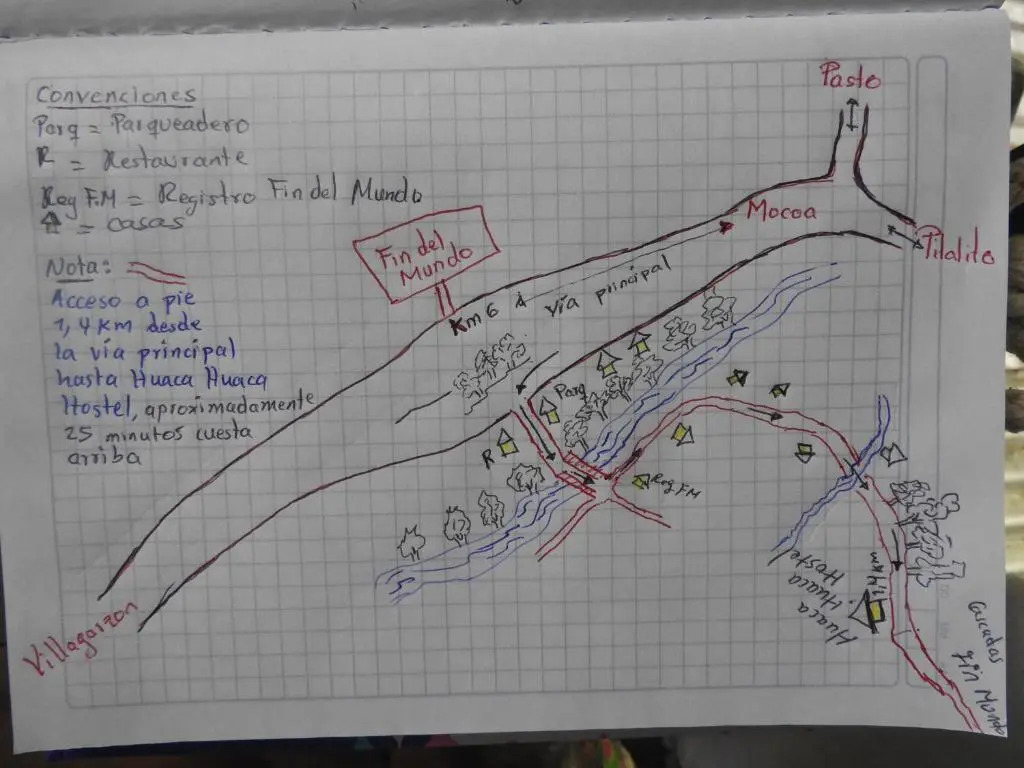 Convenciones
Parq = Parqueadero
R = Restaurante
Reg F.M = Registro Fin del Mundo
= casas
Nota:
Acceso a pie
1,4 Km desde
la vía principal
hasta Huaca Huaca
Hostel, aproximadamente
25 minutos cuesta
arriba
Pasto
Mocoa
Pitalito
Fin del
Mundo
Km 6
vía principal
Parq
R
Reg F.M
Villagarzon
1,4 Km
Huaca
Huaca
Hoste
Cascadas
Fin Mundo